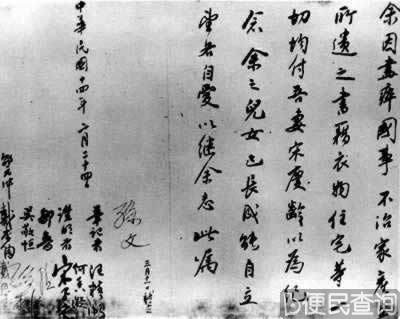 余因盡瘁國事不治家產
所遺之書籍衣物住宅等一
切均付吾妻宋慶齡以為紀
念余之兒女已長成能自立
望各自愛以继余志此屬
孫文
三月十一日補簽
中華民國十四年二月二十四
筆記者 汪精衛
何香凝
證明者 宋子文
鄒魯
吳敬恒
邵元冲 戴恩賽
便民查询